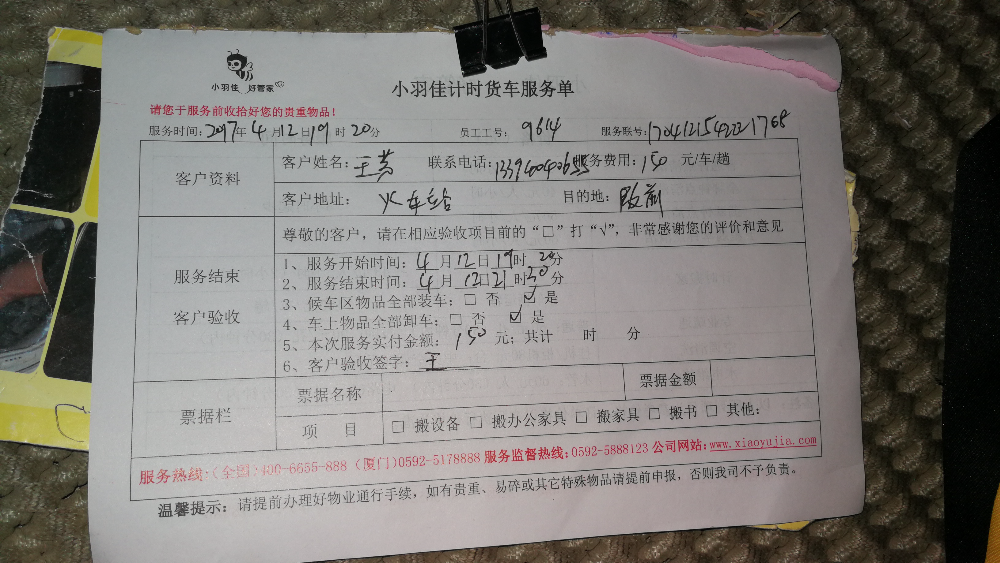 小羽佳 好管家
小羽佳计时货车服务单
请您于服务前收拾好您的贵重物品！
服务时间：2017年4月12日19时20分 员工工号：9614 服务联号：
客户资料
客户姓名：王 联系电话： 服务费用：150 元/车/趟
客户地址：火车站 目的地：前
尊敬的客户，请在相应验收项目前的“□”打“√”，非常感谢您的评价和意见
服务结束
客户验收
1、服务开始时间：4月12日19时20分
2、服务结束时间：4月12日21时30分
3、候车区物品全部装车：□ 否 ☑ 是
4、车上物品全部卸车：□ 否 ☑ 是
5、本次服务实付金额：150元；共计 时 分
6、客户验收签字：王
票据栏
票据名称 票据金额
项 目 □ 搬设备 □ 搬办公家具 □ 搬家具 □ 搬书 □ 其他：
服务热线：（全国）400-6655-888（厦门）0592-5178888 服务监督热线：0592-5888123 公司网站：www.xiaoyujia.com
温馨提示：请提前办理好物业通行手续，如有贵重、易碎或其它特殊物品请提前申报，否则我司不予负责。